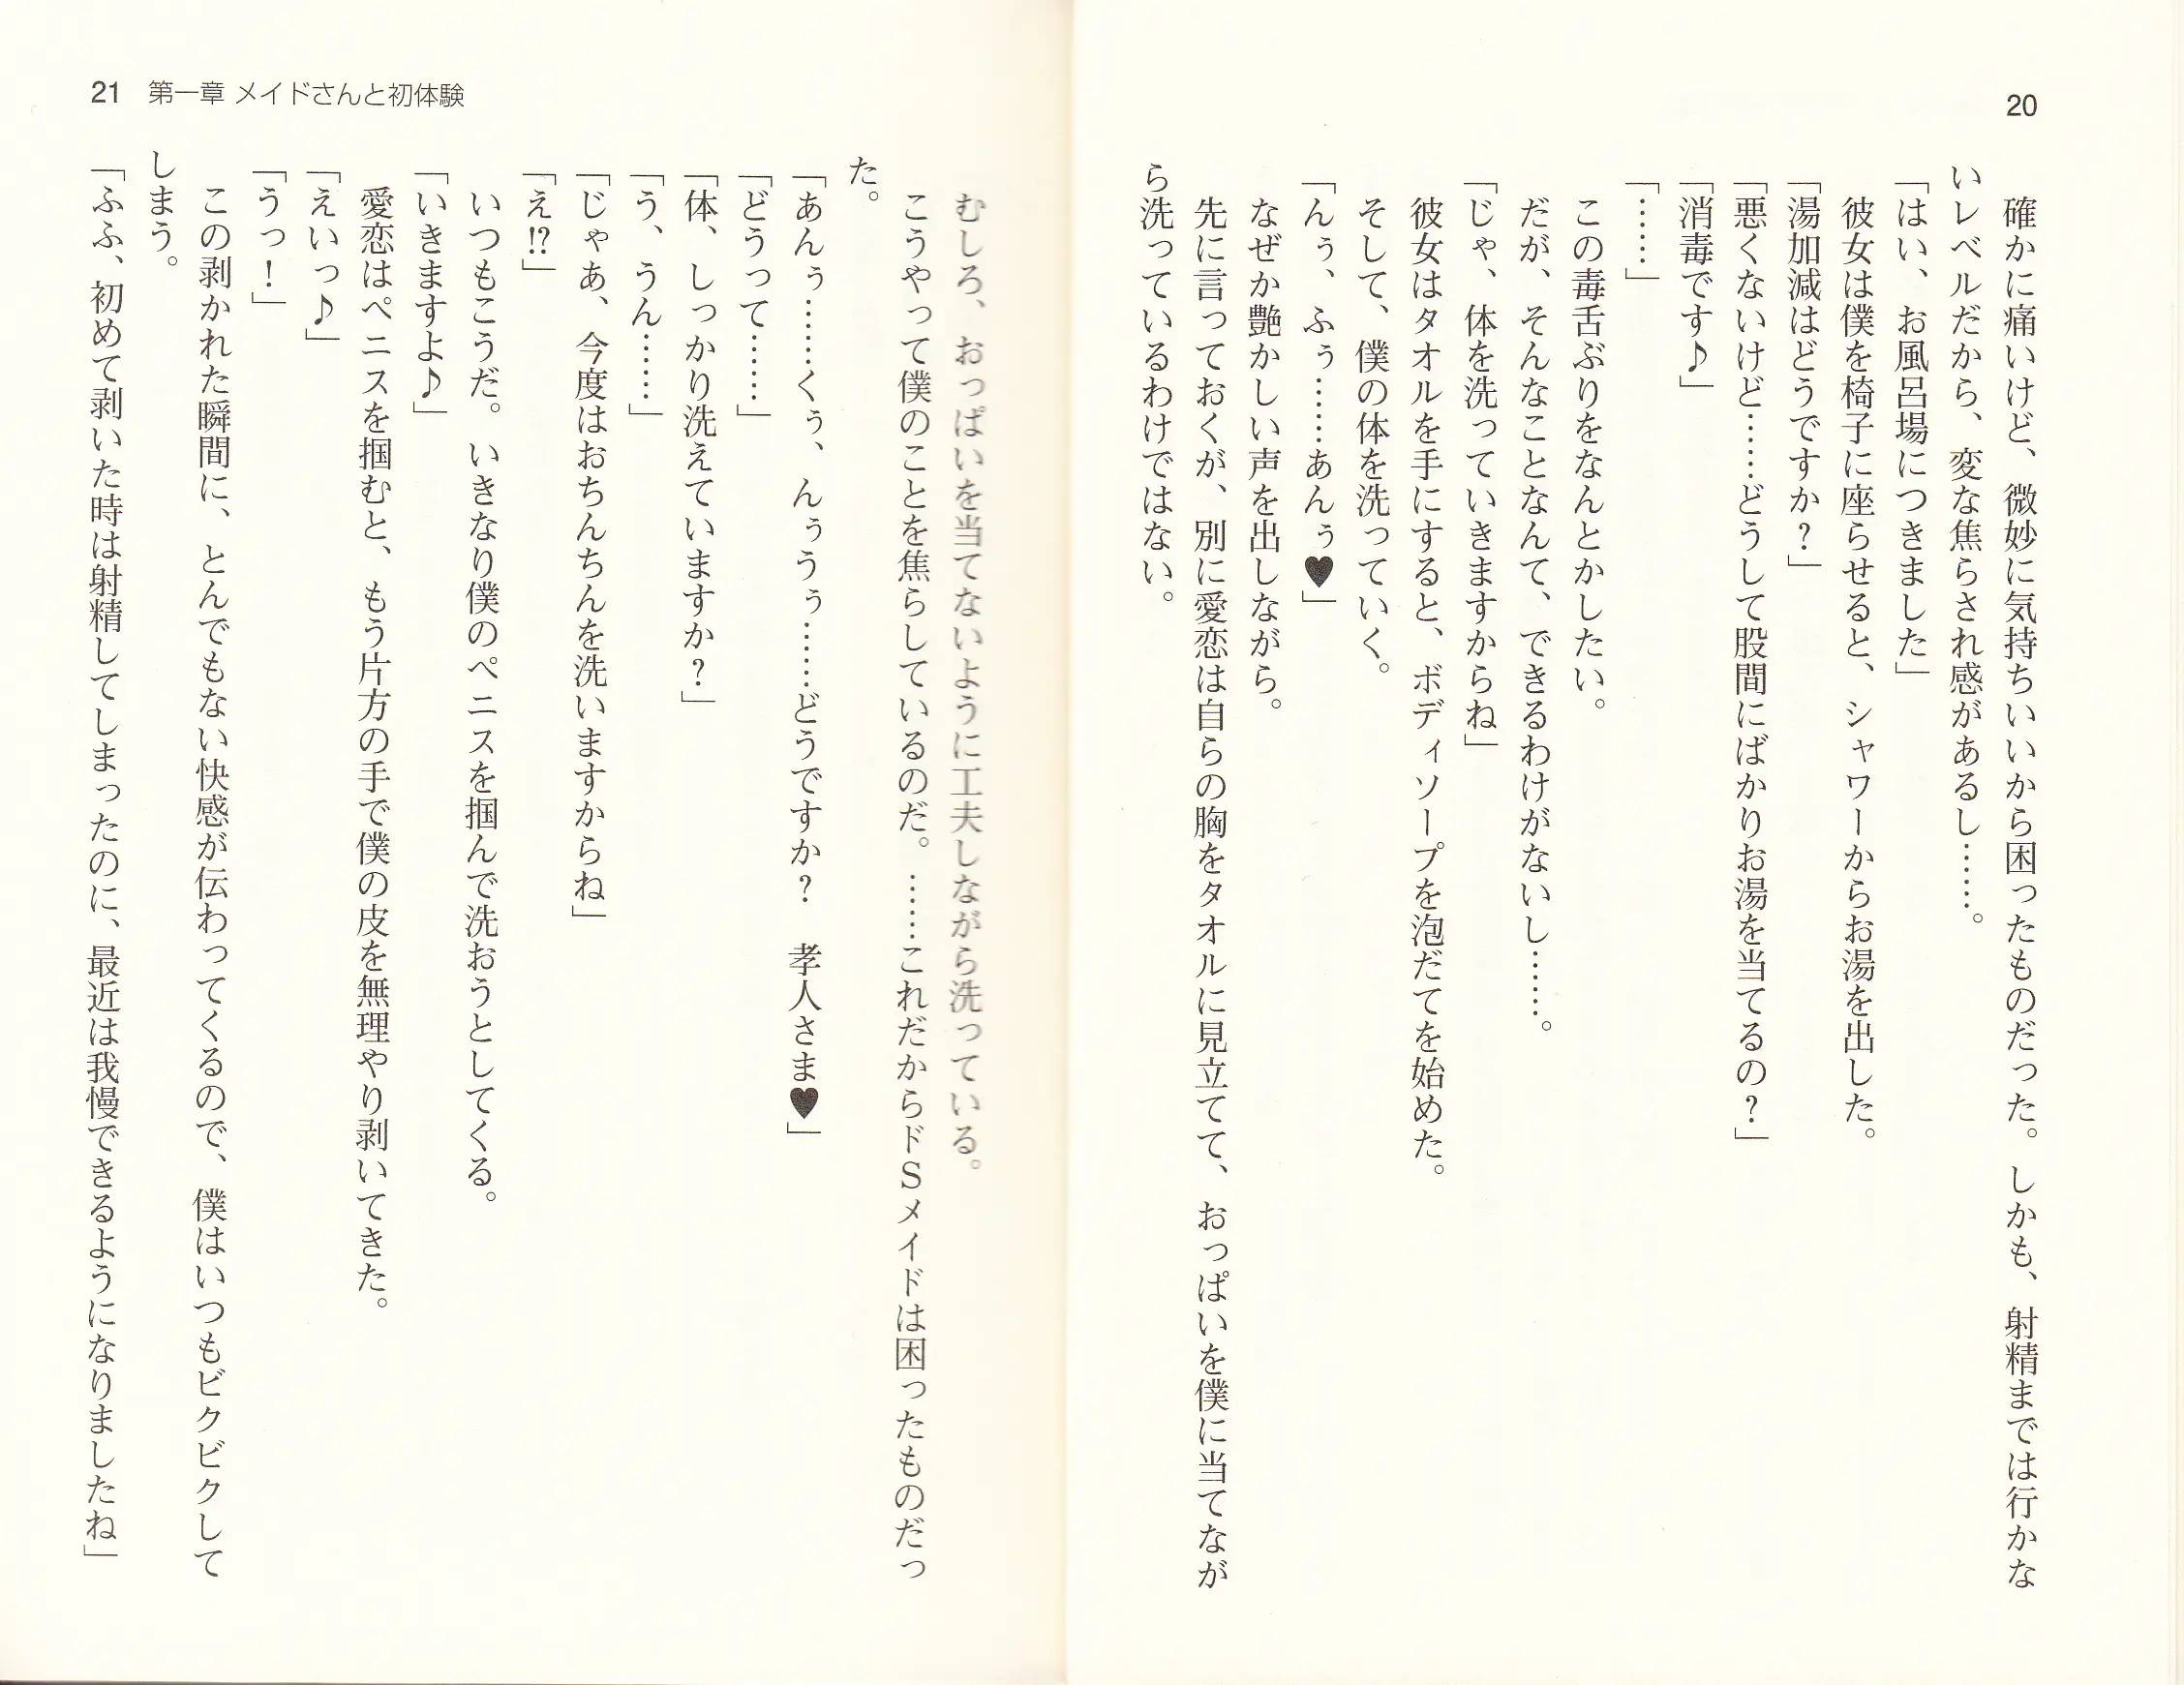 20
　確かに痛いけど、微妙に気持ちいいから困ったものだった。しかも、射精までは行かな
いレベルだから、変な焦らされ感があるし……。
「はい、お風呂場につきました」
　彼女は僕を椅子に座らせると、シャワーからお湯を出した。
「湯加減はどうですか？」
「悪くないけど……どうして股間にばかりお湯を当てるの？」
「消毒です♪」
「……」
　この毒舌ぶりをなんとかしたい。
　だが、そんなことなんて、できるわけがないし……。
「じゃ、体を洗っていきますからね」
　彼女はタオルを手にすると、ボディソープを泡だてを始めた。
　そして、僕の体を洗っていく。
「んぅ、ふぅ……あんぅ♥」
　なぜか艶かしい声を出しながら。
　先に言っておくが、別に愛恋は自らの胸をタオルに見立てて、おっぱいを僕に当てなが
ら洗っているわけではない。
21　第一章 メイドさんと初体験
　むしろ、おっぱいを当てないように工夫しながら洗っている。
　こうやって僕のことを焦らしているのだ。……これだからドSメイドは困ったものだっ
た。
「あんぅ……くぅ、んぅうぅ……どうですか？　孝人さま♥」
「どうって……」
「体、しっかり洗えていますか？」
「う、うん……」
「じゃあ、今度はおちんちんを洗いますからね」
「え!?」
　いつもこうだ。いきなり僕のペニスを掴んで洗おうとしてくる。
「いきますよ♪」
　愛恋はペニスを掴むと、もう片方の手で僕の皮を無理やり剥いてきた。
「えいっ♪」
「うっ！」
　この剥かれた瞬間に、とんでもない快感が伝わってくるので、僕はいつもビクビクして
しまう。
「ふふ、初めて剥いた時は射精してしまったのに、最近は我慢できるようになりましたね」